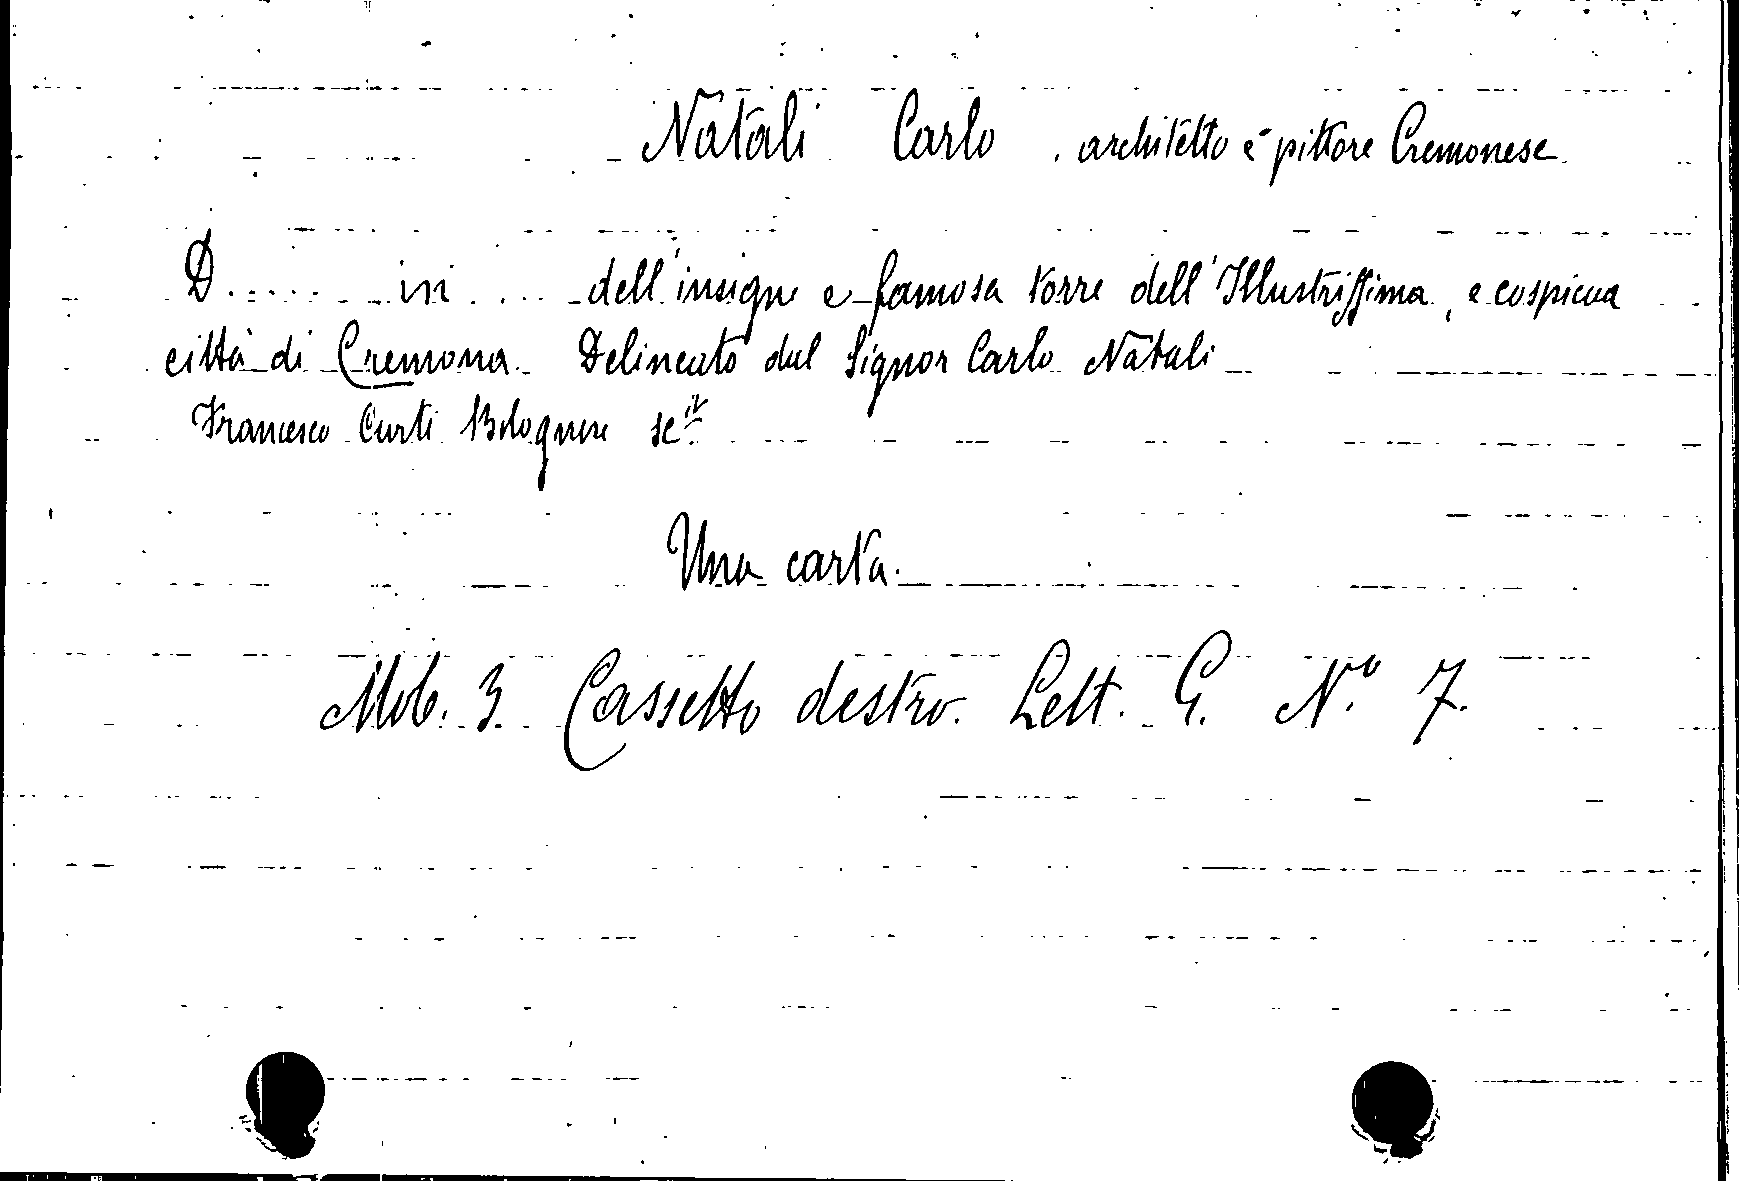 Natali Carlo, architetto e pittore Cremonese
D....... in .... dell'insigne e famosa torre dell'Illustrissima, e cospicua
città di Cremona. Delineato dal Signor Carlo Natali
Francesco Curti Bolognese sc.
Una carta.
Mob. 3. Cassetto destro. Lett. G. N.º 7.